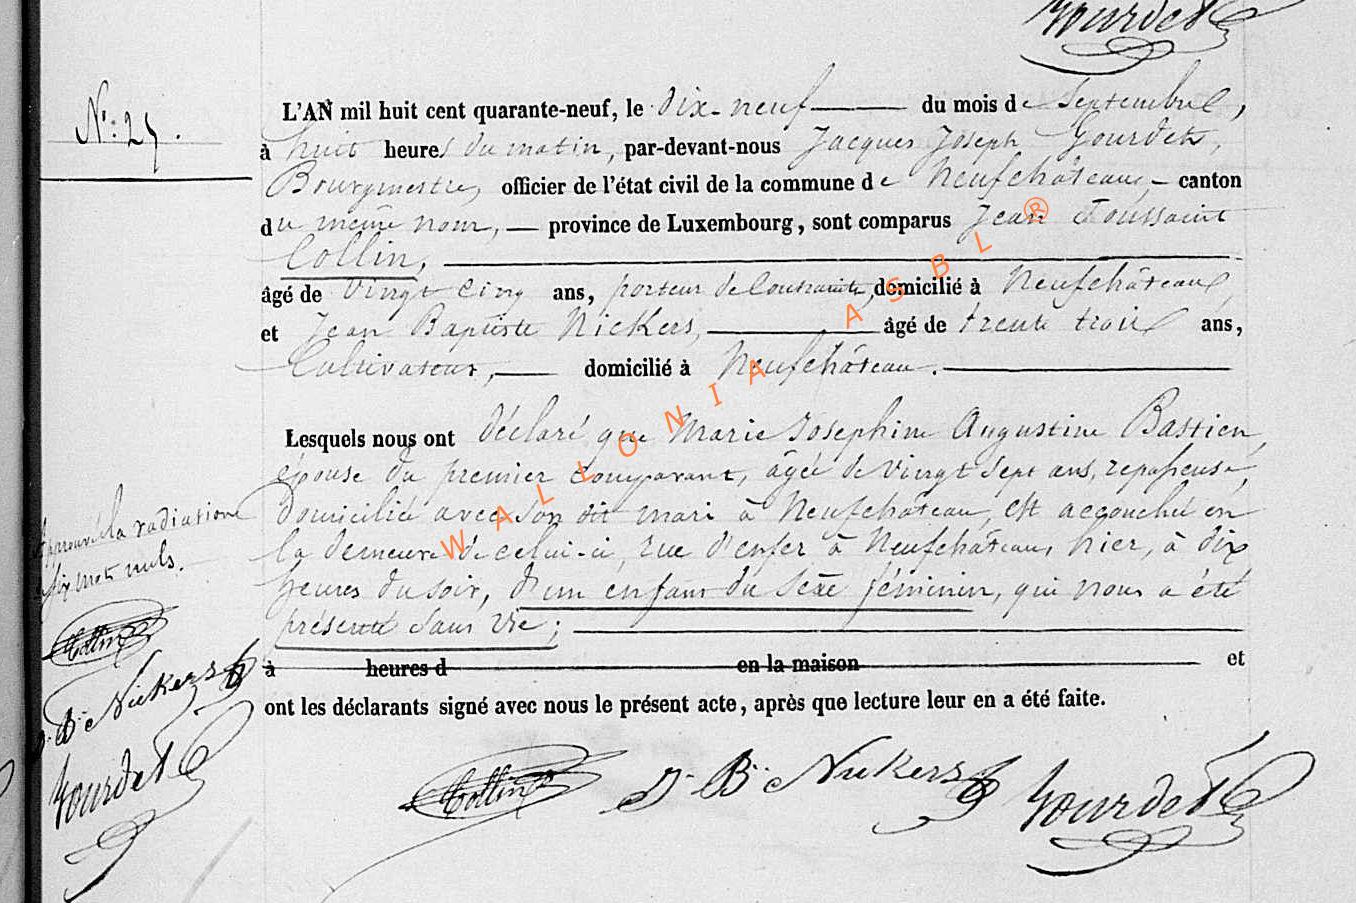 Gourdet
N°: 27.
L'AN mil huit cent quarante-neuf, le dix-neuf du mois de Septembre,
à huit heures du matin, par-devant-nous Jacques Joseph Gourdet,
Bourgmestre, officier de l'état civil de la commune de Neufchâteau, canton
du même nom, province de Luxembourg, sont comparus Jean Toussaint
Collin,
âgé de vingt cinq ans, porteur de Contrainte, domicilié à Neufchâteau,
et Jean Baptiste Nickers, âgé de trente trois ans,
Cultivateur, domicilié à Neufchâteau.
Lesquels nous ont déclaré que Marie Josephine Augustine Bastien,
épouse du premier comparant, âgée de vingt sept ans, repasseuse,
domiciliée avec son dit mari à Neufchâteau, est accouchée en
la demeure de celui-ci, rue d'enfer à Neufchâteau, hier, à dix
heures du soir, d'un enfant du sexe féminin, qui nous a été
présenté sans vie;
à heures d en la maison et
ont les déclarants signé avec nous le présent acte, après que lecture leur en a été faite.
Approuvé la radiation
de six mots nuls.
Collin
J. Bte Nickers
Gourdet
Collin J. Bte Nickers Gourdet
WALLONIA ASBL ®